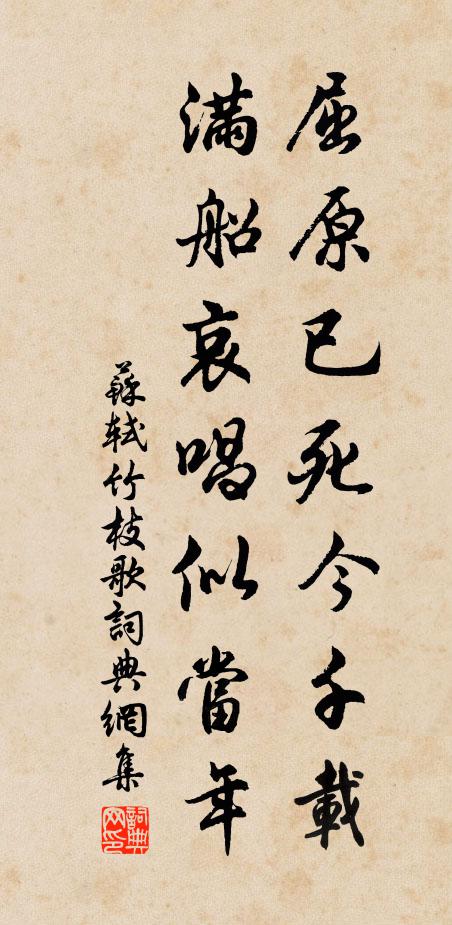 屈原已死今千載
滿船哀唱似當年
蘇軾竹枝歌詞典網集
詞典网印